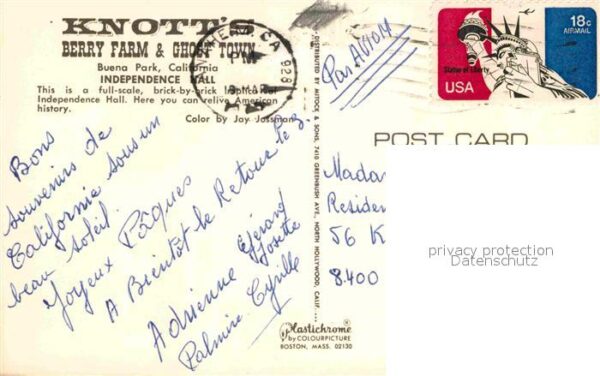 KNOTT'S
BERRY FARM & GHOST TOWN
Buena Park, California
INDEPENDENCE HALL
This is a full-scale, brick-by-brick
Independence Hall. Here you can relive American
history.
Color by Jay Jossman
Bons
souvenirs de
Californie sous un
beau soleil.
Joyeux Pâques
A Bientôt le Retour
Adrienne Gérard
Josette
Palmire Cyrille
DISTRIBUTED BY MITOCK & SONS, 7410 GREENBUSH AVE., NORTH HOLLYWOOD, CALIF.
Plastichrome
by COLOURPICTURE
BOSTON, MASS. 02130
CA 928
PM
Par Avion
18c
AIRMAIL
Statue of Liberty
USA
POST CARD
Mada
Residen
56 K
8400
privacy protection
Datenschutz